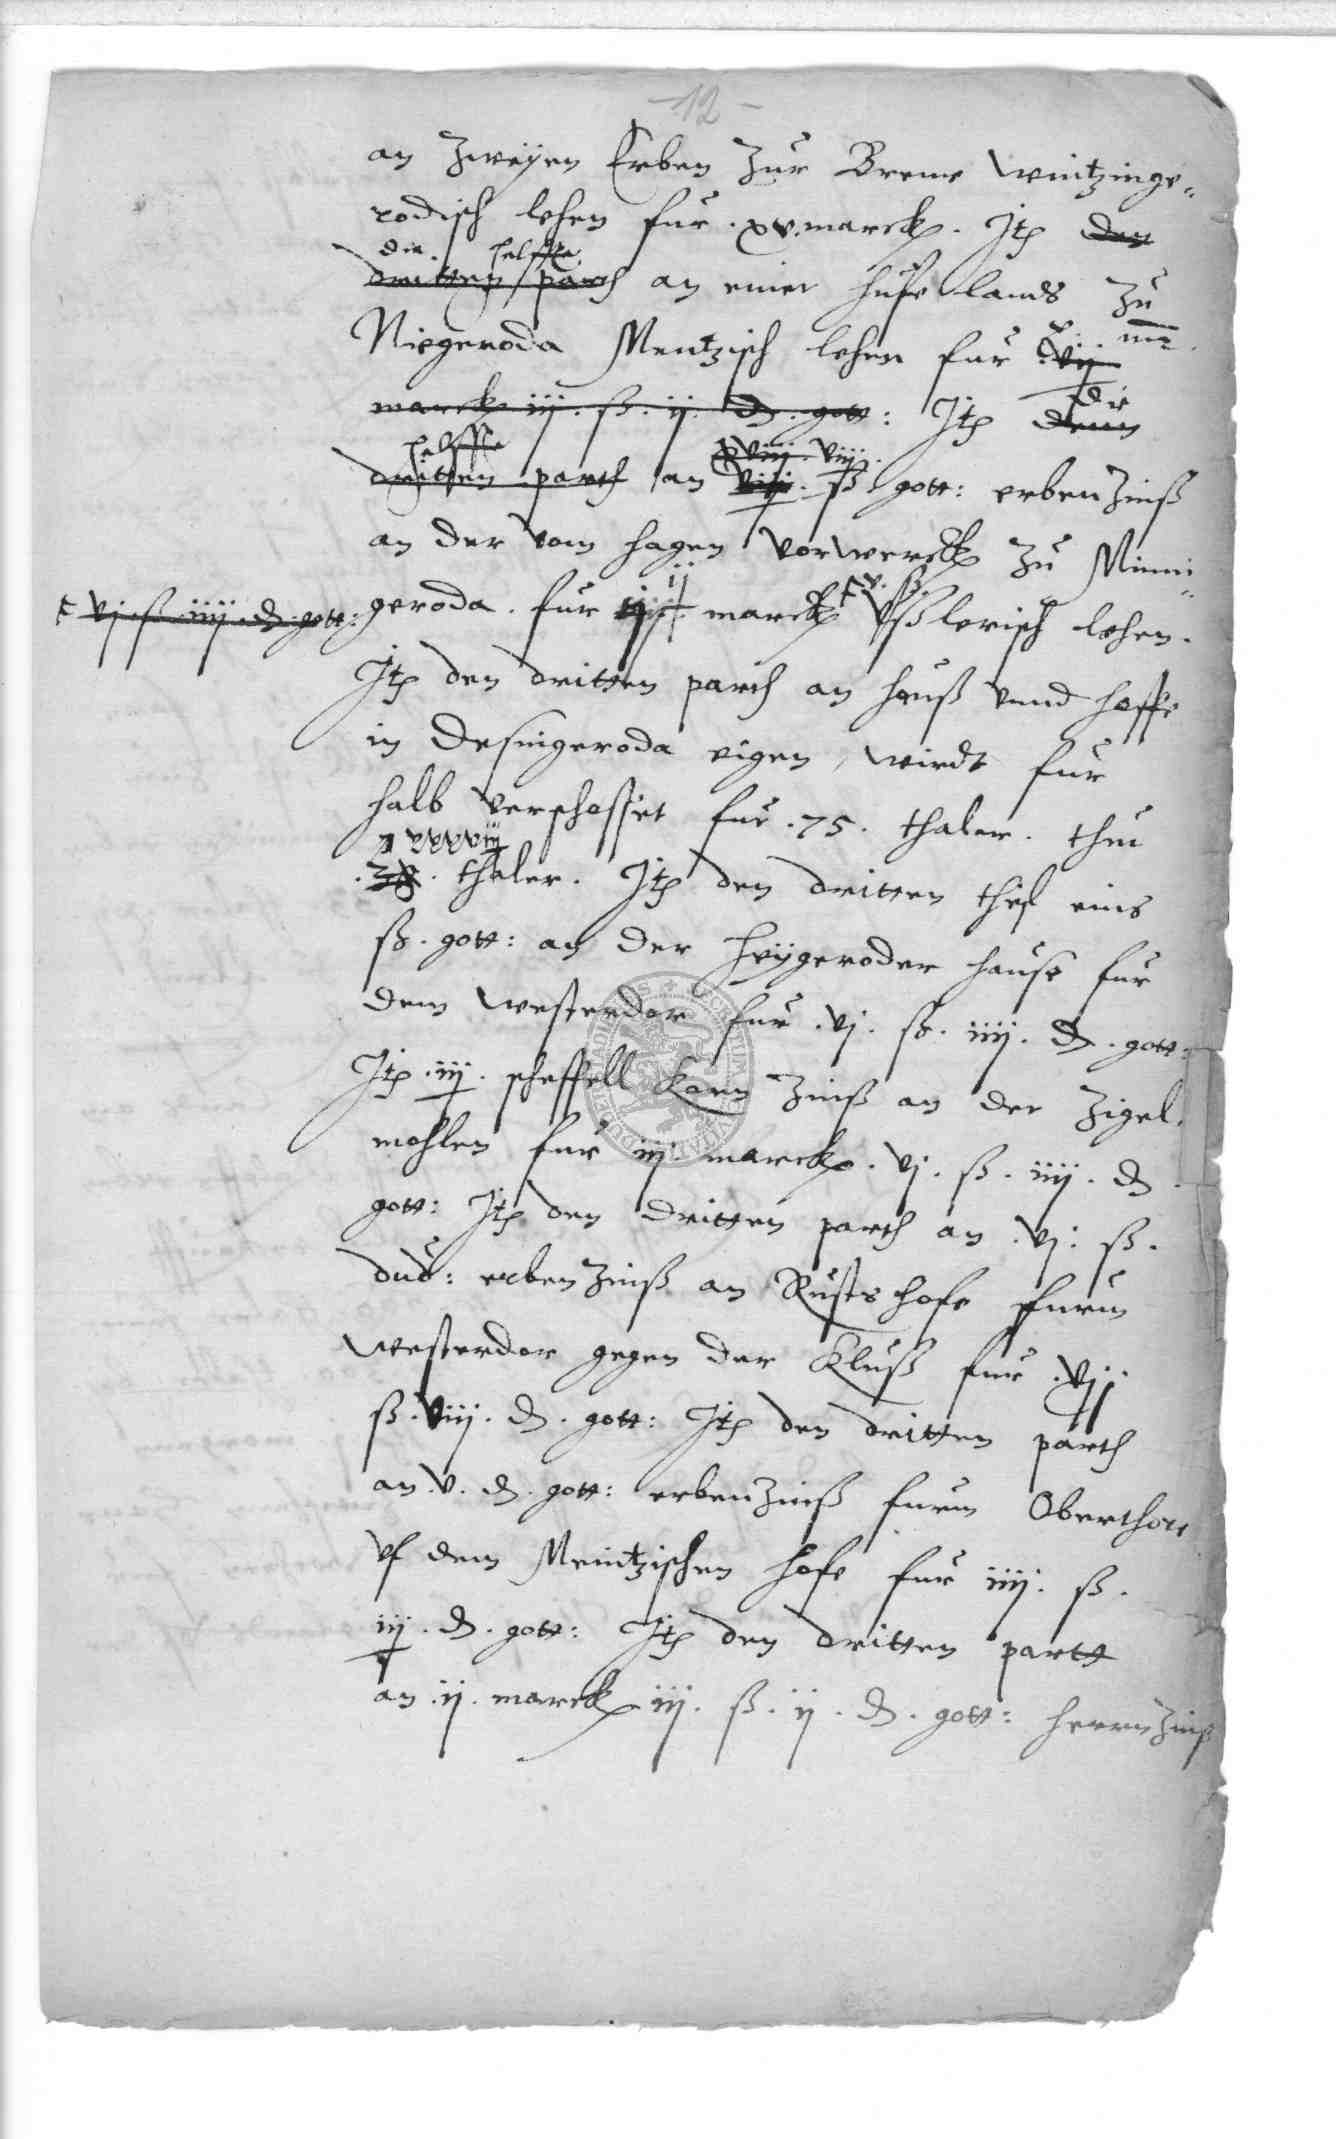 -12-
an zweyen Erben zur Breme wintzinge-
rodisch lehen fur .xv. marck. Jtem den
die helffte
dritten parth an einer hufe lands zu
Niegeroda Mentzisch lehen fur x. mr. vij
marck iij. ß. ij. d. gott: Jtem die denn
helffte xviij. viij.
dritten parth an viij. ß. gott: erbenzinß
an der vom hagen vorwerck zu Minni-
ij v. ß.
geroda. fur iij marck Vßlerisch lehen.
vj. ß. iiij. d. gott:
Jtem den dritten parth an hauß vnnd hoffe
in Desingeroda eigen, wirdt fur
halb verschosset fur .75. thaler. thut
xxxvij
38. thaler. Jtem den dritten theil eins
ß. gott: an der Heygeroder hause fur
dem westerdor fur .vj. ß. iiij. d. gott:
Jtem .iij. scheffell Korn zinß an der Zigel-
mohlen fur iij marck. vj. ß. iiij. d
gott: Jtem den dritten parth an .vj. ß.
dud: erbenzinß an Rusts hofe furm
westerdor gegen der Kluß fur .vj.
ß. viij. d. gott: Jtem den dritten parth
an .v. d. gott: erbenzinß furm Oberthore
vf dem Meintzischen hofe fur iiij. ß.
iij. d. gott: Jtem den dritten partt
an .ij. marck iij. ß. ij. d. gott: herrnzinß